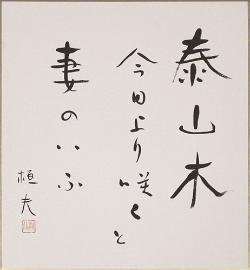 泰山木
今日より咲くと
妻のいふ
恒夫